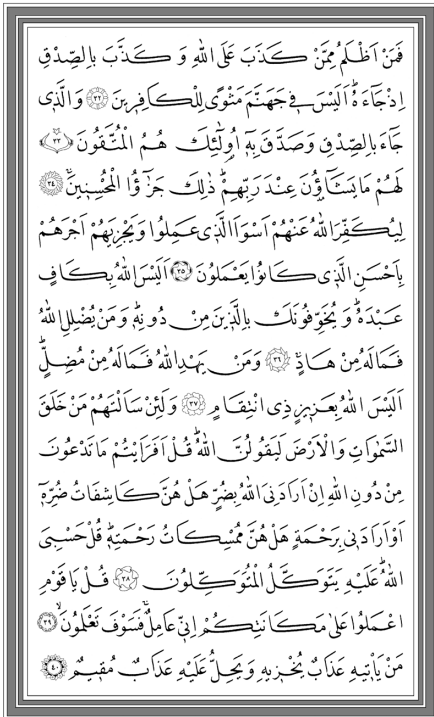 فَمَنْ اَظْلَمُ مِمَّنْ كَذَبَ عَلَى اللّٰهِ وَ كَذَّبَ بِالصِّدْقِ
اِذْ جَٓاءَهُۜ اَلَيْسَ فٖي جَهَنَّمَ مَثْوًى لِلْكَافِرٖينَ ﴿٣٢﴾ وَالَّذٖي
جَٓاءَ بِالصِّدْقِ وَصَدَّقَ بِهٖٓ اُو۬لٰٓئِكَ هُمُ الْمُتَّقُونَ ﴿٣٣﴾
لَهُمْ مَا يَشَٓاؤُ۫نَ عِنْدَ رَبِّهِمْۜ ذٰلِكَ جَزٰٓؤُا الْمُحْسِنٖينَۚ ﴿٣٤﴾
لِيُكَفِّرَ اللّٰهُ عَنْهُمْ اَسْوَاَ الَّذٖي عَمِلُوا وَيَجْزِيَهُمْ اَجْرَهُمْ
بِاَحْسَنِ الَّذٖي كَانُوا يَعْمَلُونَ ﴿٣٥﴾ اَلَيْسَ اللّٰهُ بِكَافٍ
عَبْدَهُۜ وَ يُخَوِّفُونَكَ بِالَّذٖينَ مِنْ دُونِهٖۜ وَمَنْ يُضْلِلِ اللّٰهُ
فَمَا لَهُ مِنْ هَادٍۚ ﴿٣٦﴾ وَمَنْ يَهْدِ اللّٰهُ فَمَا لَهُ مِنْ مُضِلٍّۜ
اَلَيْسَ اللّٰهُ بِعَزٖيزٍ ذِي انْتِقَامٍ ﴿٣٧﴾ وَلَئِنْ سَاَلْتَهُمْ مَنْ خَلَقَ
السَّمٰوَاتِ وَالْاَرْضَ لَيَقُولُنَّ اللّٰهُۜ قُلْ اَفَرَاَيْتُمْ مَا تَدْعُونَ
مِنْ دُونِ اللّٰهِ اِنْ اَرَادَنِيَ اللّٰهُ بِضُرٍّ هَلْ هُنَّ كَاشِفَاتُ ضُرِّهٖٓ
اَوْ اَرَادَنٖي بِرَحْمَةٍ هَلْ هُنَّ مُمْسِكَاتُ رَحْمَتِهٖۜ قُلْ حَسْبِيَ
اللّٰهُۜ عَلَيْهِ يَتَوَكَّلُ الْمُتَوَكِّلُونَ ﴿٣٨﴾ قُلْ يَا قَوْمِ
اعْمَلُوا عَلٰى مَكَانَتِكُمْ اِنّٖي عَامِلٌۚ فَسَوْفَ تَعْلَمُونَۙ ﴿٣٩﴾
مَنْ يَأْتٖيهِ عَذَابٌ يُخْزٖيهِ وَيَحِلُّ عَلَيْهِ عَذَابٌ مُقٖيمٌ ﴿٤٠﴾